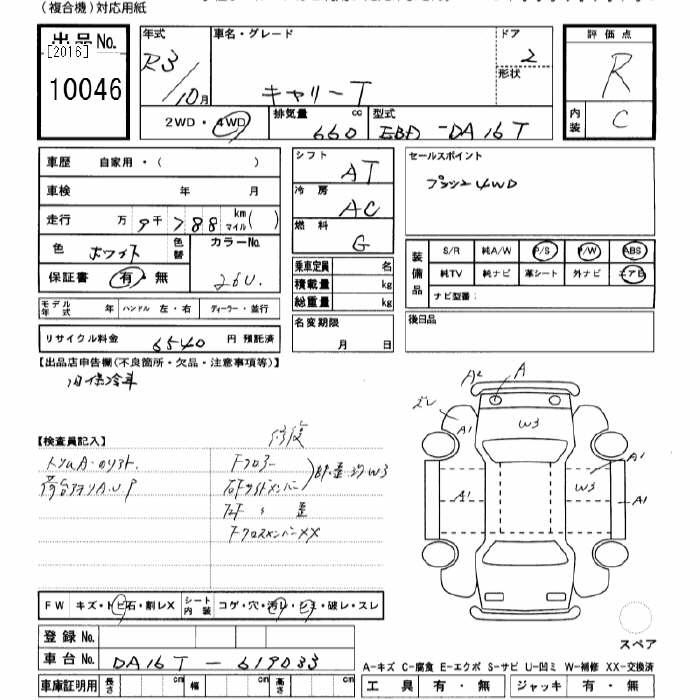 (複合機)対応用紙
出品No.
[2016]
10046
年式
R3/10月
車名・グレード
キャリーT
ドア
2
形状
評価点
R
内装
C
2WD・4WD
排気量
660
cc
型式
EBD-DA16T
車歴 自家用・( )
車検 年 月
走行 万 9千788 km マイル( )
色 ホワイト 色替
カラーNo.
26U.
保証書 有・無
シフト
AT
冷房
AC
燃料
G
乗車定員 名
積載量 kg
総重量 kg
セールスポイント
4WD
装備品
S/R 純A/W P/S P/W ABS
純TV 純ナビ 革シート 外ナビ エアB
ナビ型番:
モデル年式 年 ハンドル 左・右 ディーラー・並行
リサイクル料金 6540 円 預託済
名変期限
月 日
後日品
【出品店申告欄(不良箇所・欠品・注意事項等)】
【検査員記入】
修復
Fフロアー
W3
歪
FクロスメンバーXX
A2
A
A1
W3
A1
A1
W3
A1
FW キズ・トビ石・割レX
シート内装 コゲ・穴・汚レ・シミ・破レ・スレ
スペア
登録No.
車台No. DA16T-619033
車庫証明用 長さ cm 幅 cm 高さ cm
A-キズ C-腐食 E-エクボ S-サビ U-凹ミ W-補修 XX-交換済
工具 有・無 ジャッキ 有・無